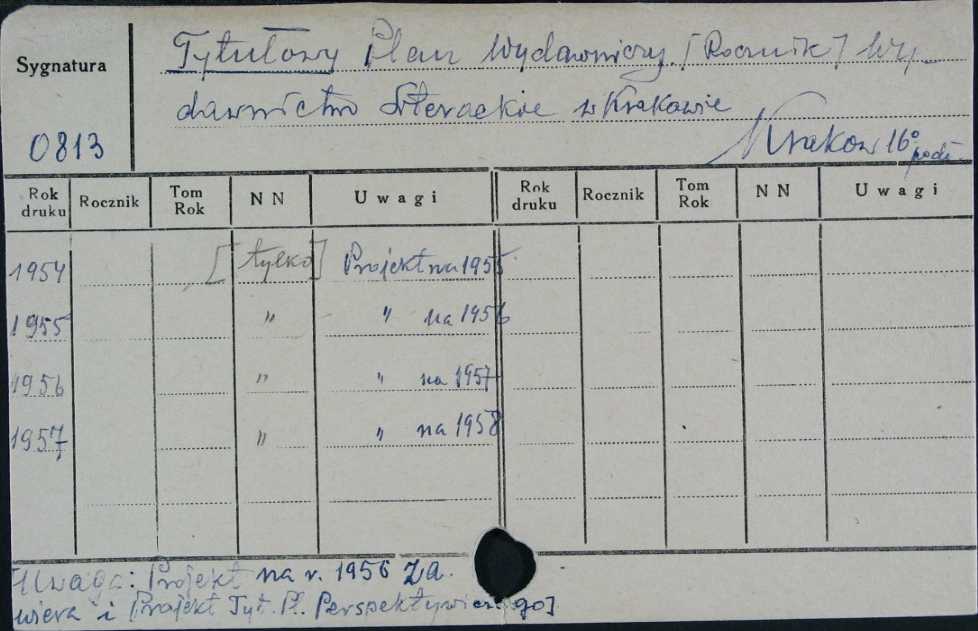 Sygnatura
0813
Tytułowy Plan Wydawniczy [Rocznik] Wy-
dawnictwo Literackie w Krakowie
Kraków 16° podł.
Rok druku Rocznik Tom Rok NN Uwagi Rok druku Rocznik Tom Rok NN Uwagi
1954 [tylko] Projekt na 1955
1955 " " na 1956
1956 " " na 1957
1957 " " na 1958
[Uwaga: Projekt na r. 1956 za-
wiera i Projekt Tyt. Pl. Perspektywicznego]